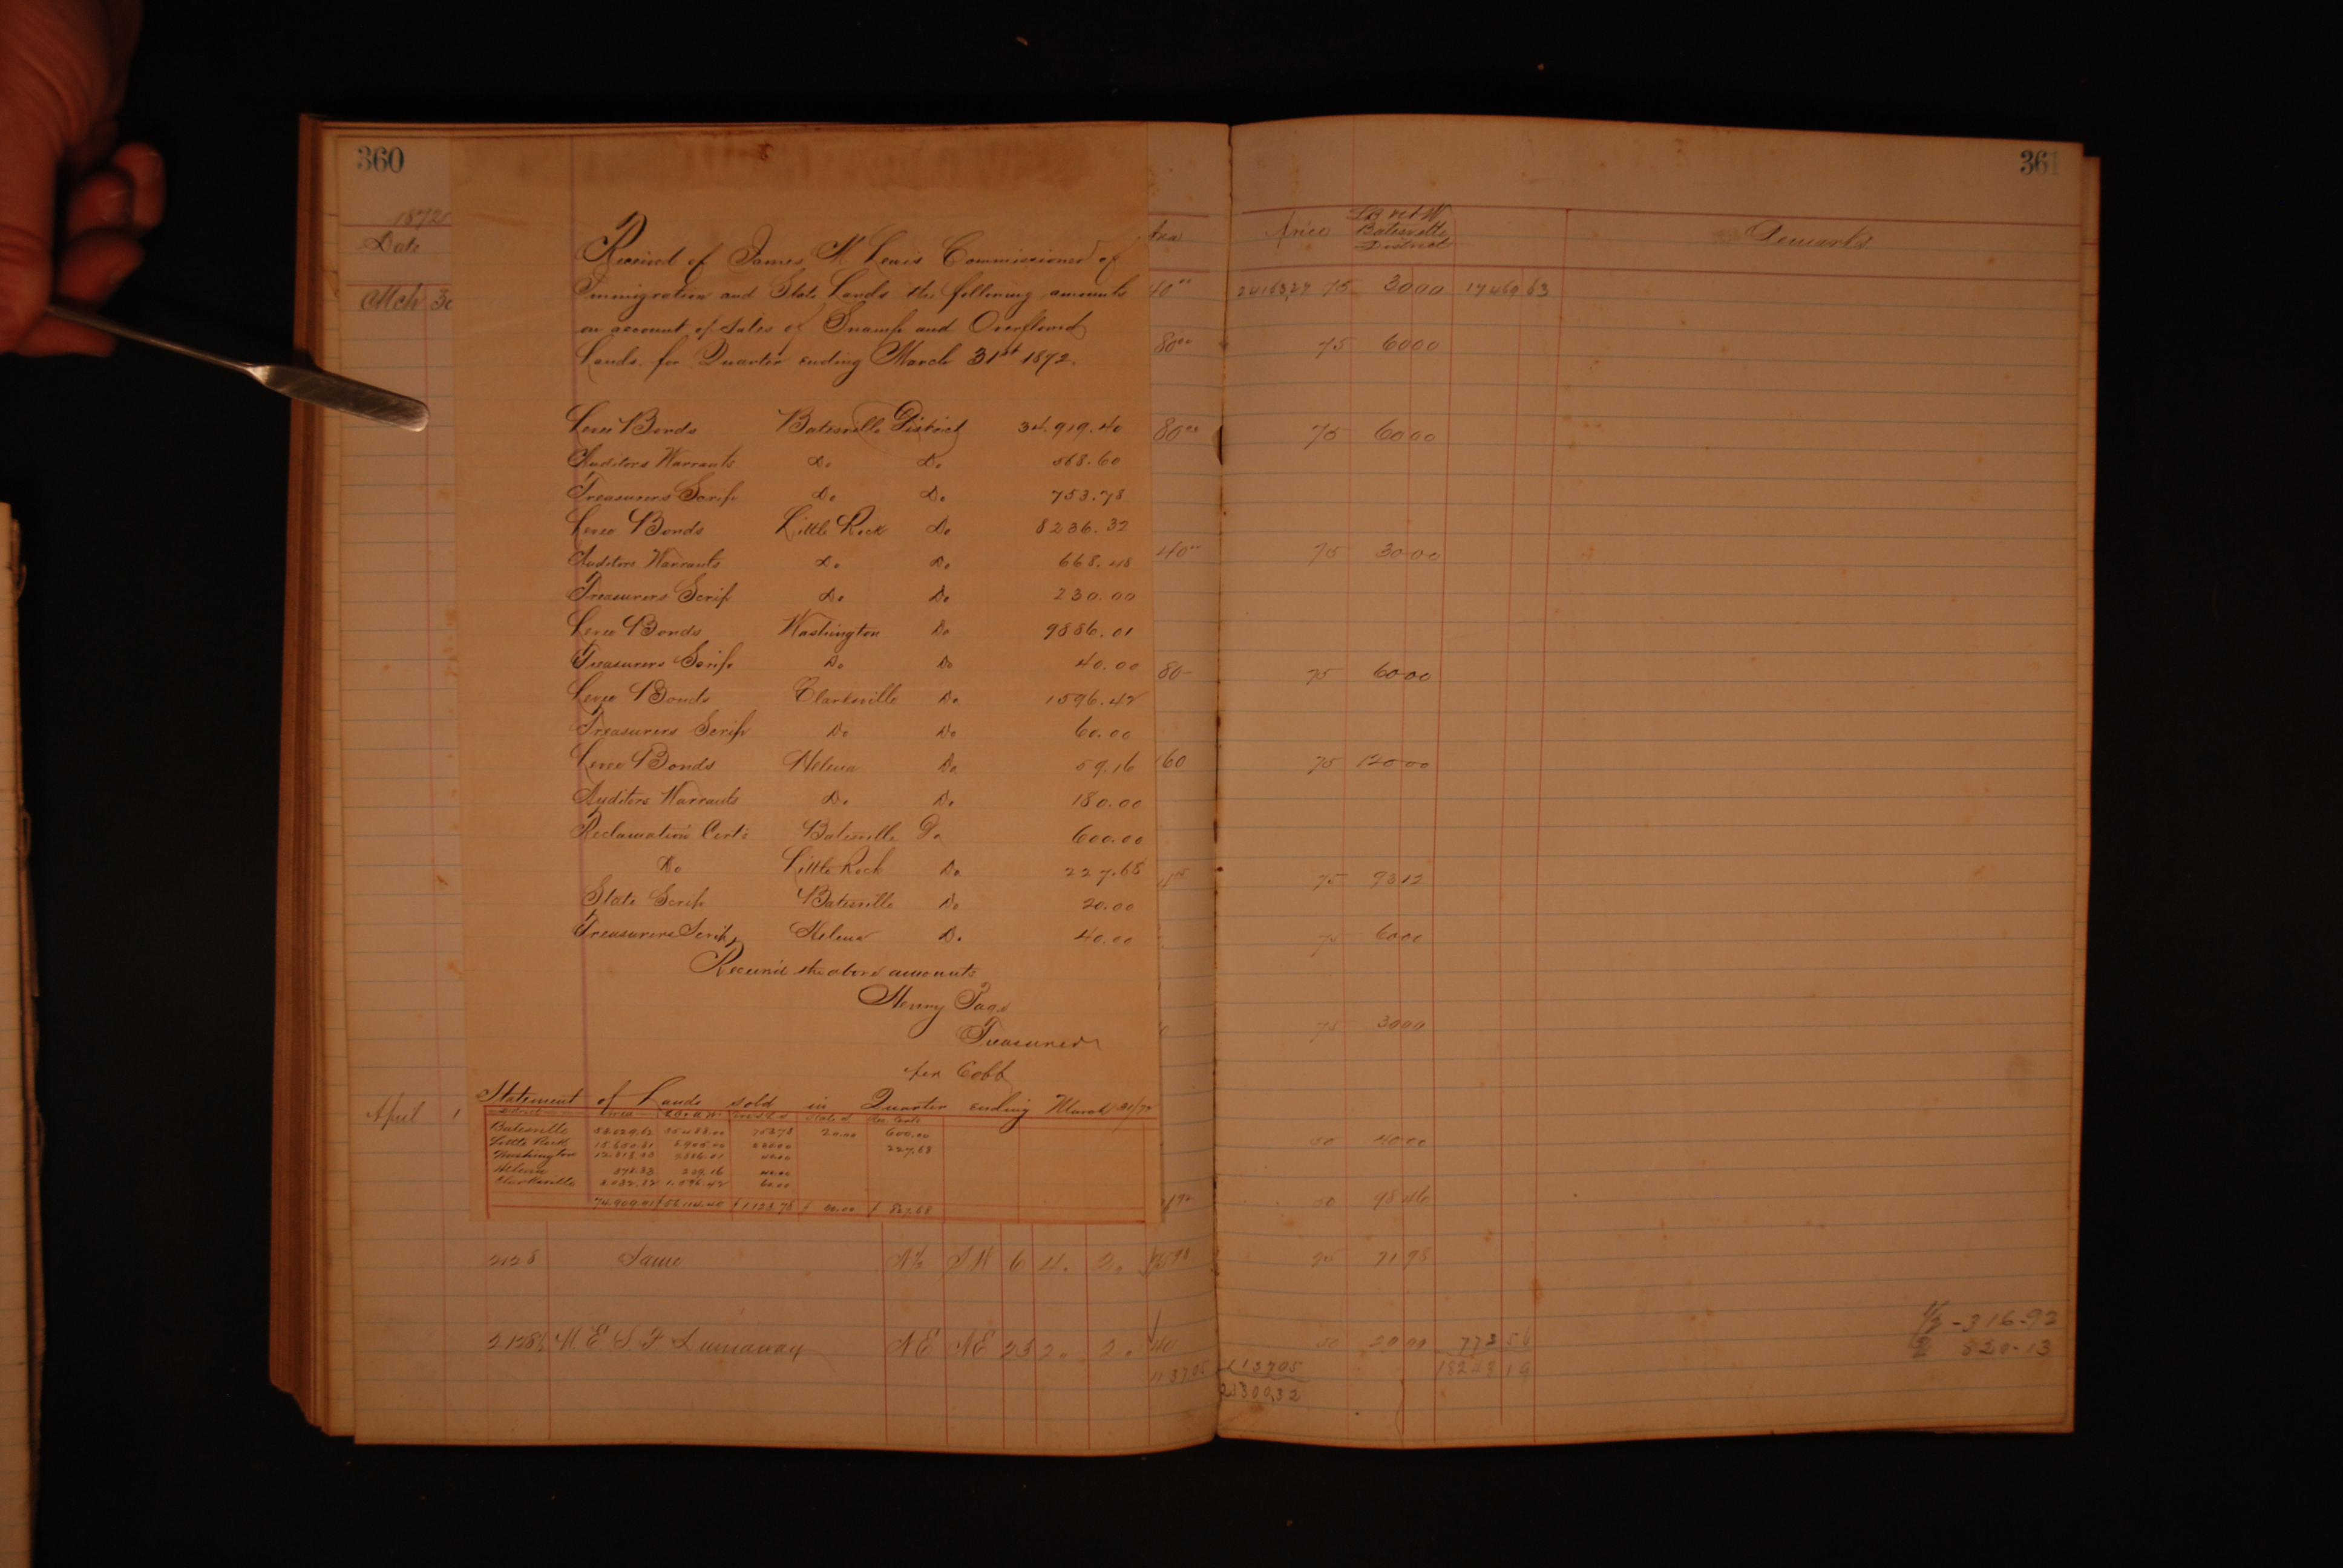 360
1872
Date
Mch 30
Received of James M Lewis Commissioner of
Immigration and State Lands the following amounts
on account of Sales of Swamp and Overflowed
Lands for Quarter ending March 31st 1872.
Levee Bonds Batesville District 34.919.40
Auditors Warrants Do Do 568.60
Treasurers Scrip Do Do 753.78
Levee Bonds Little Rock Do 8236.32
Auditors Warrants Do Do 668.48
Treasurers Scrip Do Do 230.00
Levee Bonds Washington Do 9886.01
Treasurers Scrip Do Do 40.00
Levee Bonds Clarksville Do 1596.42
Treasurers Scrip Do Do 60.00
Levee Bonds Helena Do 59.16
Auditors Warrants Do Do 180.00
Reclamation Certs Batesville Do 600.00
Do Little Rock Do 227.68
State Scrip Batesville Do 20.00
Treasurers Scrip Helena Do 40.00
Received the above amounts
Henry Page
Treasurer
per Cobb
Statement of Lands sold in Quarter ending March 31/72
District Area
Batesville 753.78 20.00 600.00
Little Rock 227.68
Washington 9886.01 40.00
Helena 239.16 40.00
Clarksville 1.596.42 60.00
74.909.91 $56.114.40 $1.123.78 $ 20.00 $ 827.68
April 1
2128 Same N½ SW 6 4. 2.
2128½ NE S.F. Dunaway NE NE 23 2. 2. 40
1137.05
361
Area
Price
LB &c AW
Batesville
District
Remarks
40 24163,27 75 3000 17469 63
80 75 6000
80 75 6000
40 75 3000
80 75 6000
160 75 12000
75 9312
75 6000
75 3000
50 4000
50 9846
75 7198
50 2000 773 56
113705 18243 19
½ - 316-92
820-13